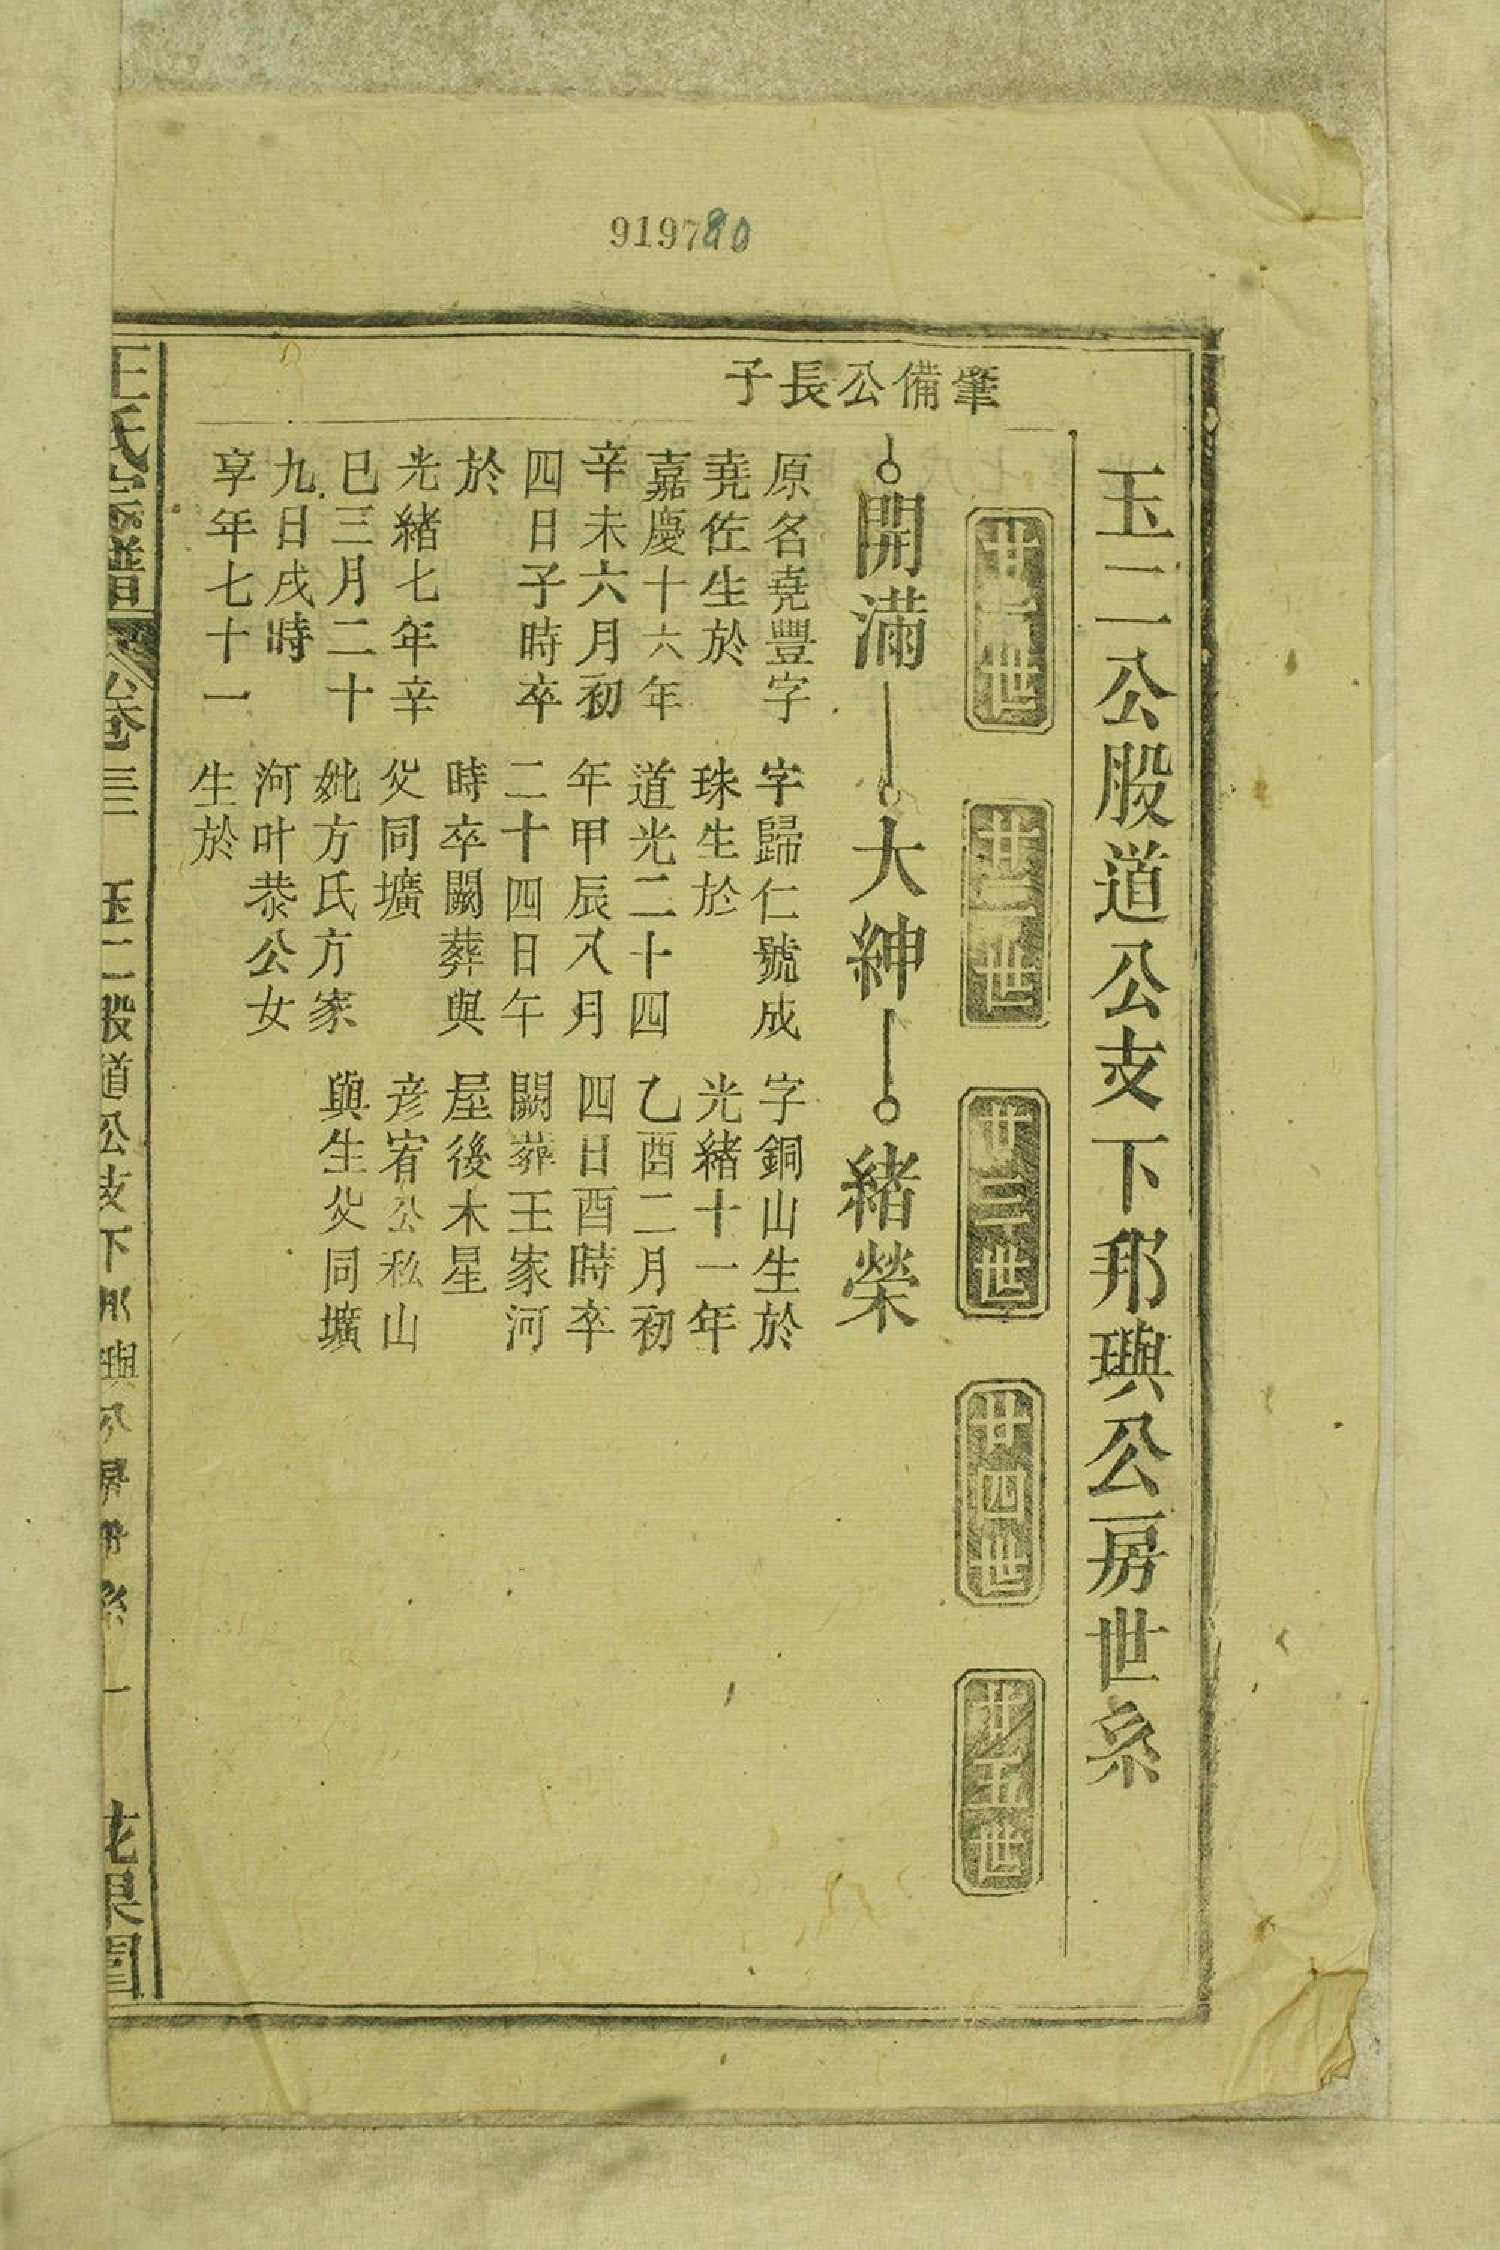 919780
玉二公股道公支下邦璵公房世系
廿一世
廿二世
廿三世
廿四世
廿五世
肇備公長子
開滿
大紳
緒榮
原名堯豐字
堯佐生於
嘉慶十六年
辛未六月初
四日子時卒
於
光緒七年辛
巳三月二十
九日戌時
享年七十一
字歸仁號成
珠生於
道光二十四
年甲辰八月
二十四日午
時卒闕葬與
父同壙
妣方氏方家
河叶恭公女
生於
字銅山生於
光緒十一年
乙酉二月初
四日酉時卒
闕葬王家河
屋後木星
彦宥公私山
與生父同壙
王氏宗譜
卷三
玉二股道公支下邦璵公房世系
一
花果園